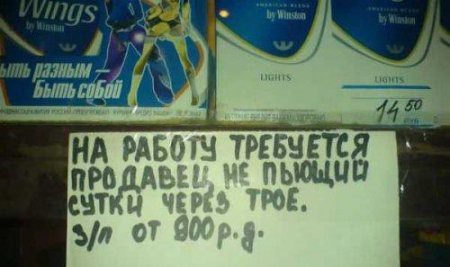 Wings
by Winston
AMERICAN BLEND
by Winston
by Winston
ыть разным —
Быть собой
LIGHTS
LIGHTS
14 50
НА РАБОТУ ТРЕБУЕТСЯ
ПРОДАВЕЦ НЕ ПЬЮЩИЙ
СУТКИ ЧЕРЕЗ ТРОЕ.
З/П ОТ 800 р.д.